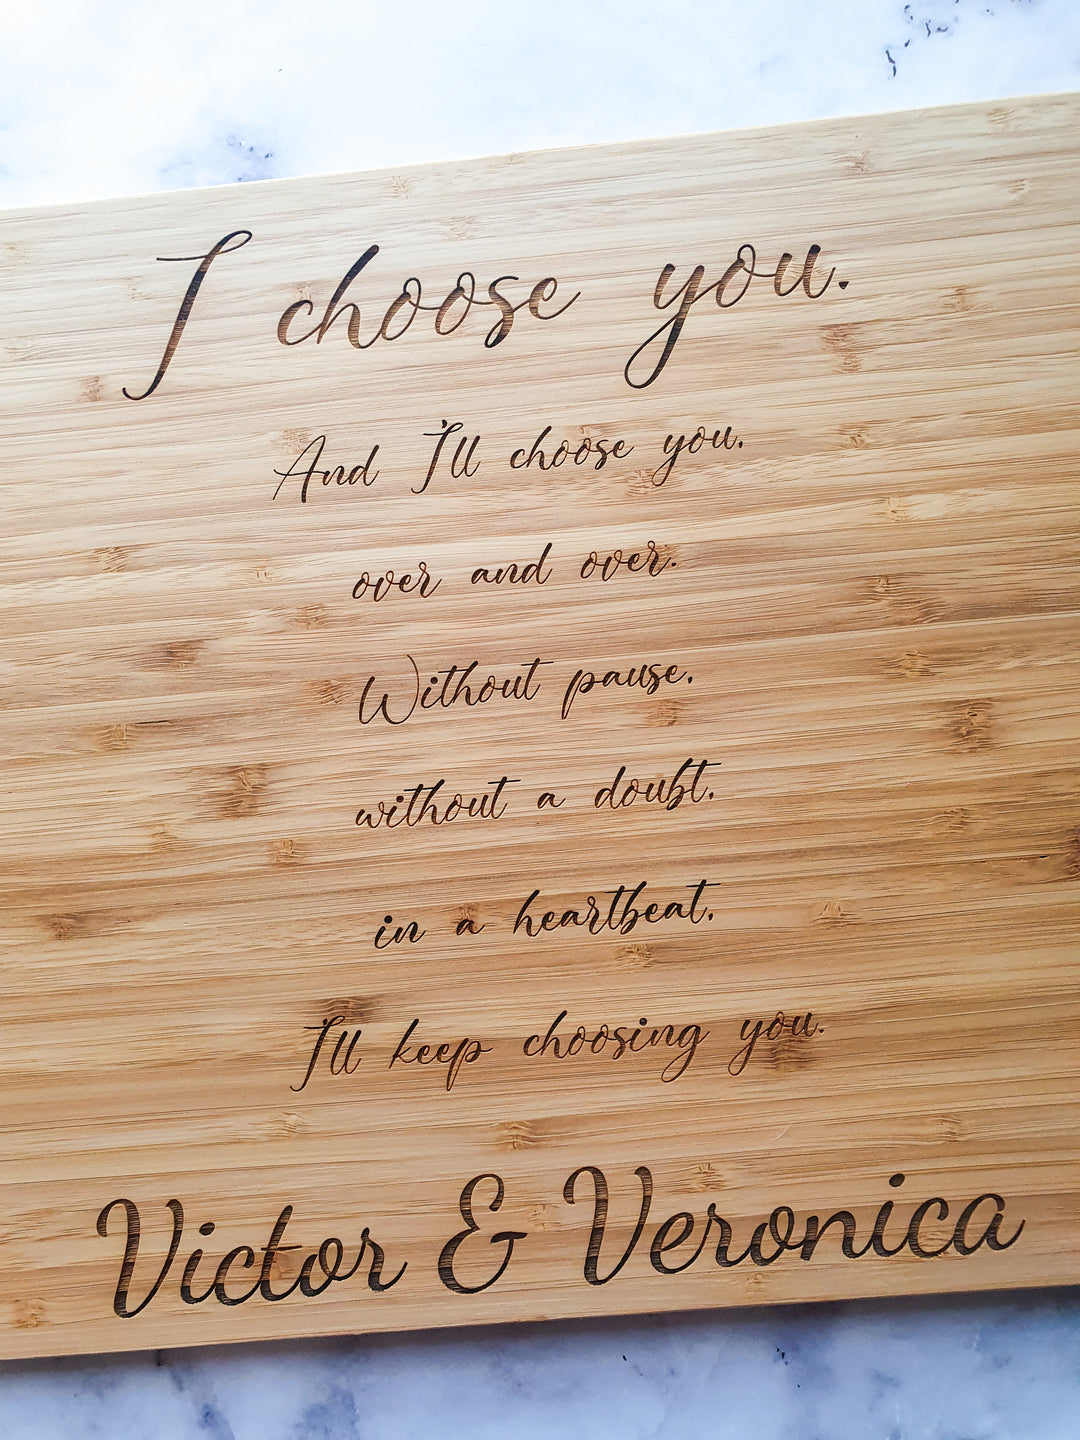 I choose you.
And I'll choose you,
over and over.
Without pause,
without a doubt,
in a heartbeat,
I'll keep choosing you.
Victor & Veronica